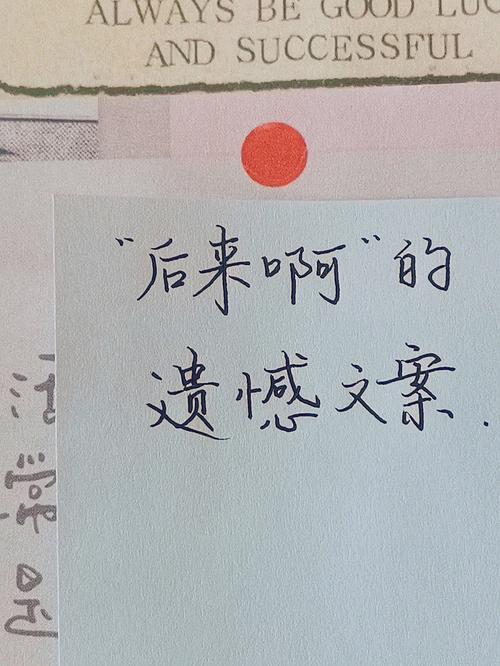 ALWAYS BE GOOD LUC
AND SUCCESSFUL
“后来啊”的
遗憾文案.